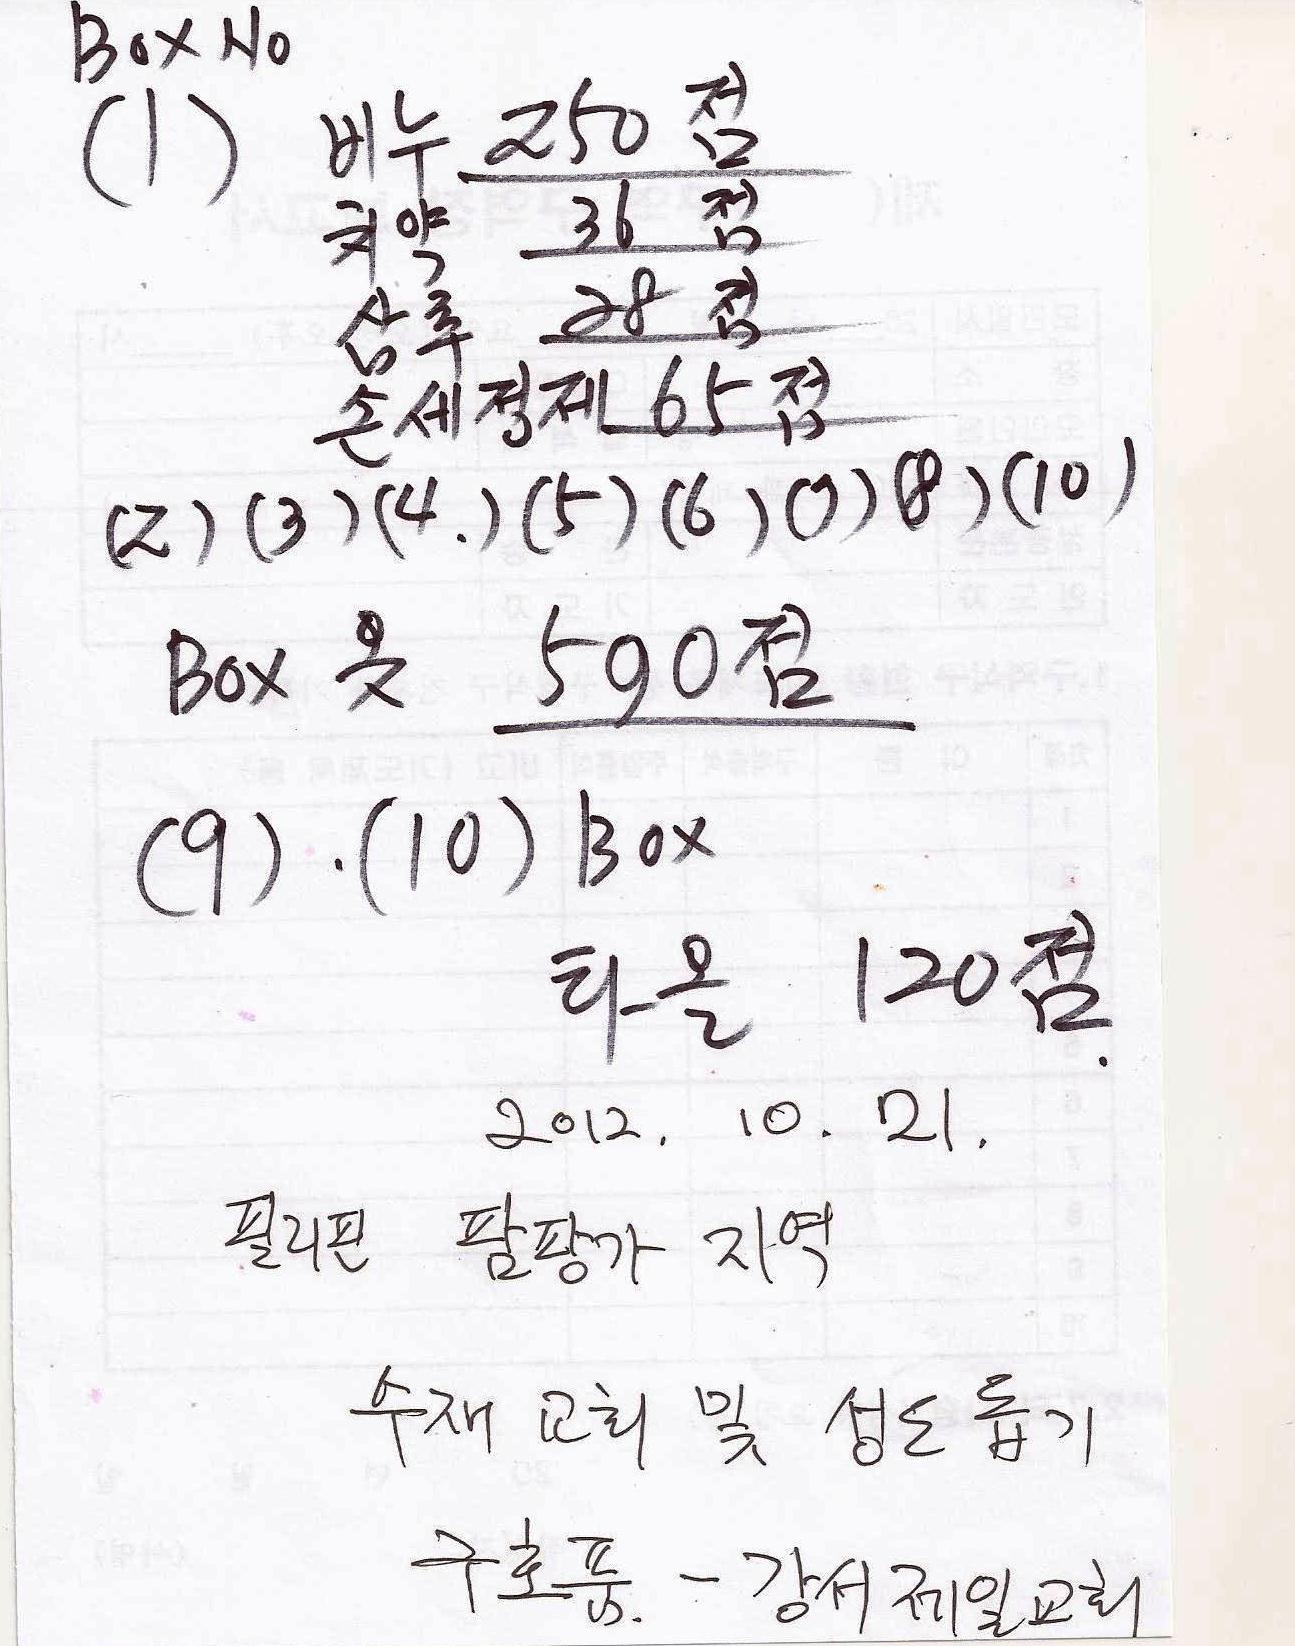 Box No
(1) 비누 250 점
치약 36 점
삼푸 28 점
손세정제 65 점
(2) (3) (4.) (5) (6) (7) (8) (10)
Box 옷 590 점
(9) . (10) Box
타올 120 점.
2012. 10. 21.
필리핀 팜팡가 지역
수재 교회 및 성도 돕기
구호품. - 강서제일교회